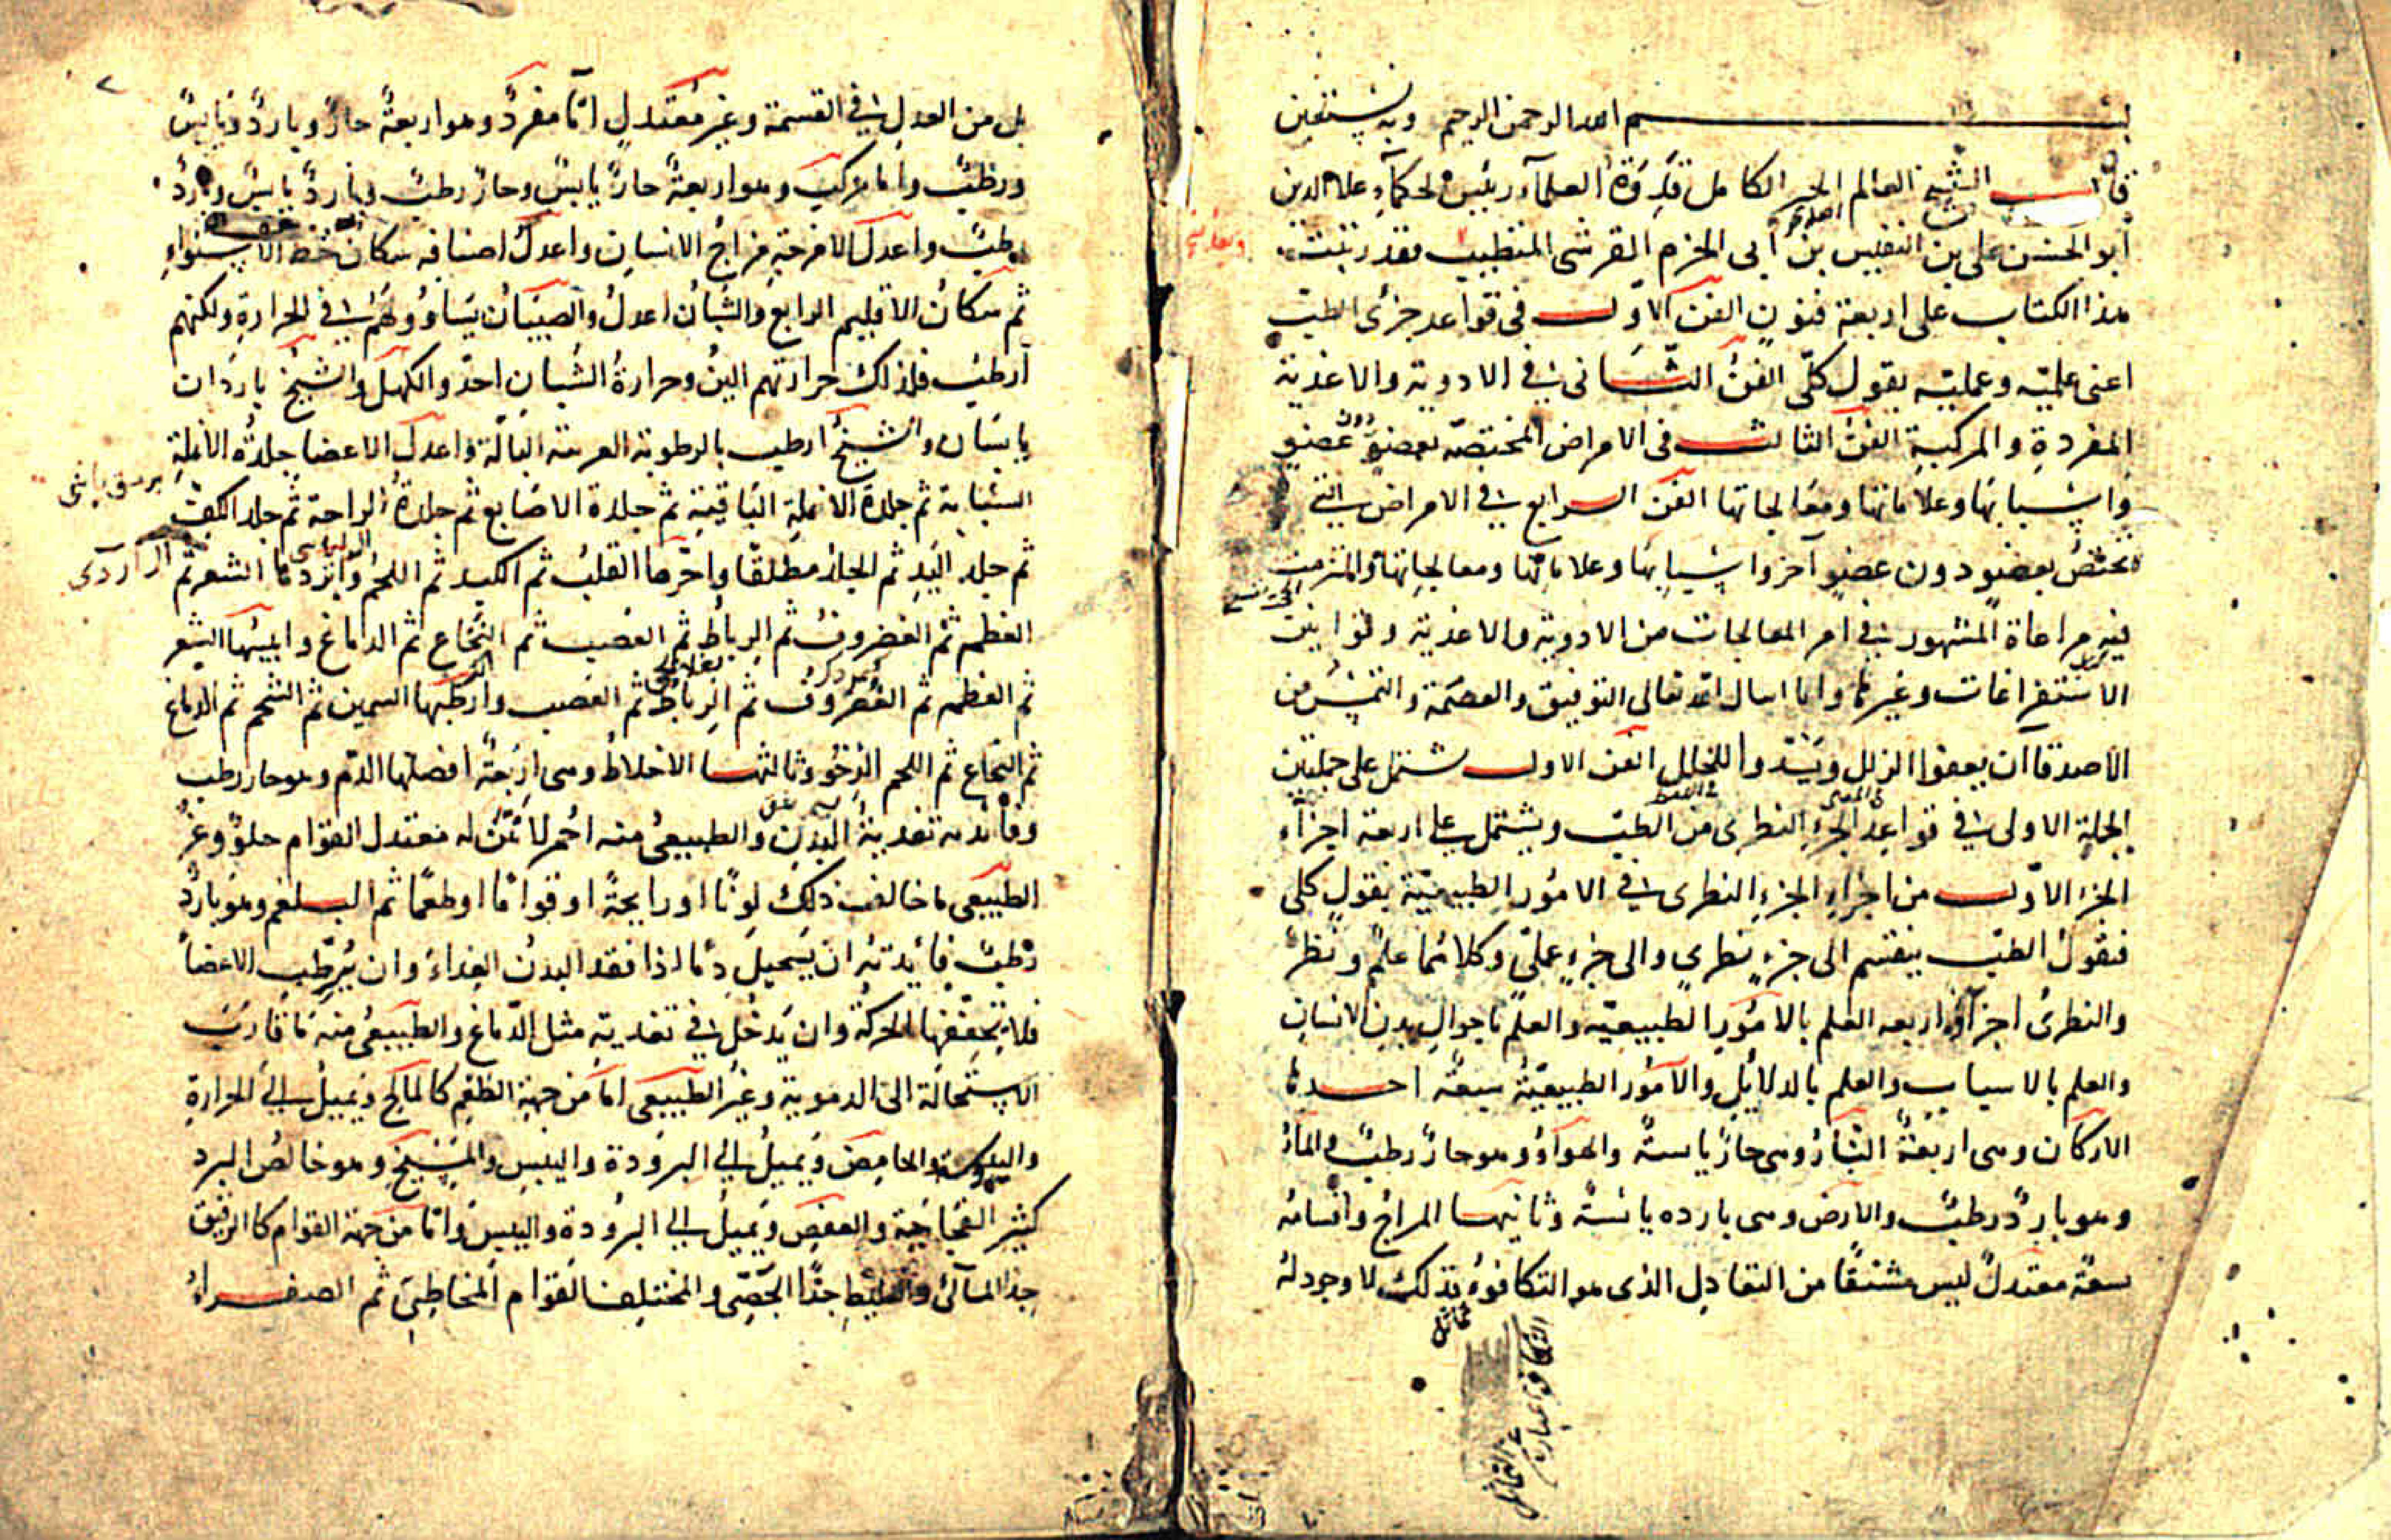 بسم الله الرحمن الرحيم وبه نستعين
قال الشيخ العالم الحبر الكامل قدوة العلماء رئيس الحكماء علا الدين
أبو الحسن علي بن النفيس بن أبي الحزم القرشي المتطبب فقد رتبت
هذا الكتاب على اربعة فنون الفن الاول في قواعد جزئى الطب
اعنى علميه وعمليه بقول كلّى الفنّ الثانى في الادوية والاغذية
المفردة والمركبة الفنّ الثالث فى الامراض المختصّة بعضوٍ دون عضو
واسبابها وعلاماتها ومعالجاتها الفن الرابع في الامراض التي
لا تختص بعضو دون عضو آخر واسبابها وعلاماتها ومعالجاتها والتزمت
فيه مراعاة المشهور في امر المعالجات من الادوية والاغذية وقوانين
الاستفراغات وغيرها وانا اسال الله تعالى التوفيق والعصمة والتمس من
الاصدقا ان يعفوا الزلل ويسدوا للخلل الفن الاول يشتمل على جملتين
الجملة الاولى في قواعد الجزء النظرى من الطب ويشتمل على اربعة اجزاء
الجزء الاوّل من اجزاء الجزء النظرى في الامور الطبيعيّة بقول كلى
فنقول الطب ينقسم الى جزءٍ نظري والى جزءٍ عملى وكلاهما علم ونظر
والنظرىُ اجزاؤه اربعه العلم بالامور الطبيعيّه والعلم باحوال بدن الانسان
والعلم بالاسباب والعلم بالدلايل والامور الطبيعيّة سبعة احدها
الاركان وهى اربعةٌ النّار وهى حارّ يابسةٌ والهواءُ وهو حارّ رطبٌ والماءُ
وهو باردٌ رطبٌ والارض وهى بارده يابسةٌ وثانيها المزاج واقسامه
تسعة معتدلٌ ليس مشتقًا من التعادل الذى هو التكافؤ فذلك لا وجود له
التكافؤ عبارة عن التقابل
بل من العدل في القسمة وغير معتدلٍ امّا مفردٌ وهو اربعةٌ حارٌ وباردٌ ويابسٌ
ورطبٌ واما مركب وهو اربعةٌ حارّ يابسٌ وحارّ رطبٌ وباردٌ يابسٌ وباردٌ
رطبٌ واعدل الامزجةِ مزاجُ الانسان واعدل اصنافه سكان خط الاستواءِ
ثم سكان الاقليم الرابع والشبان اعدلُ والصبيان يساوونهم في الحرارة ولكنهم
أرطب فلذلك حرارتهم الينُ وحرارةُ الشبان احدّ والكهل والشيخ باردان
يابسان والشيخ ارطب بالرطوبة الغريبة البالّة واعدل الاعضا جلدة الانملة
السبّابة ثم جلدة الانملة الباقية ثم جلدة الاصابع ثم جلدة الراحة ثم جلد الكف
ثم جلد اليد ثم الجلد مطلقًا واحرّها القلب ثم الكبد ثم اللحم وابردها الشعر ثم
العظم ثم الغضروف ثم الرباط ثم العصب ثم النخاع ثم الدماغ وايبسها الشعر
ثم العظم ثم الغضروف ثم الرباط ثم العصب وارطبها السمين ثم الشحم ثم الدماغ
ثم النخاع ثم اللحم الرّخو وثالثها الاخلاط وهى اربعةٌ افضلها الدّم وهو حار رطب
وفائدته تغذيةُ البدن والطبيعىُ منه احمر لا نتن له معتدل القوام حلوٌ وغيرُ
الطبيعى ما خالف ذلك لونًا او رايحةً او قوامًا او طعمًا ثم البلغم وهو باردٌ
رطبٌ فائدته ان يستحيل دمًا اذا فقد البدنُ الغذاءَ وان يُرطّب الاعضا
فلا تجففها الحركة وان يدخل في تغذية مثل الدّماغ والطبيعىُ منه ما قارب
الاستحالة الى الدموية وغيرُ الطبيعى امّا من جهة الطعم كالمالح ويميل الى الحرارة
واليبوسة والحامض ويميل الى البرودة واليبس والمسيخ وهو خالص البرد
كثير الفجاجة والعفص ويميل الى البرودة واليبس وامّا من جهة القوام كالرقيق
جدّا المائى والغليظ جدًّا الجصّى والمختلف القوام المخاطى ثم الصفراءُ